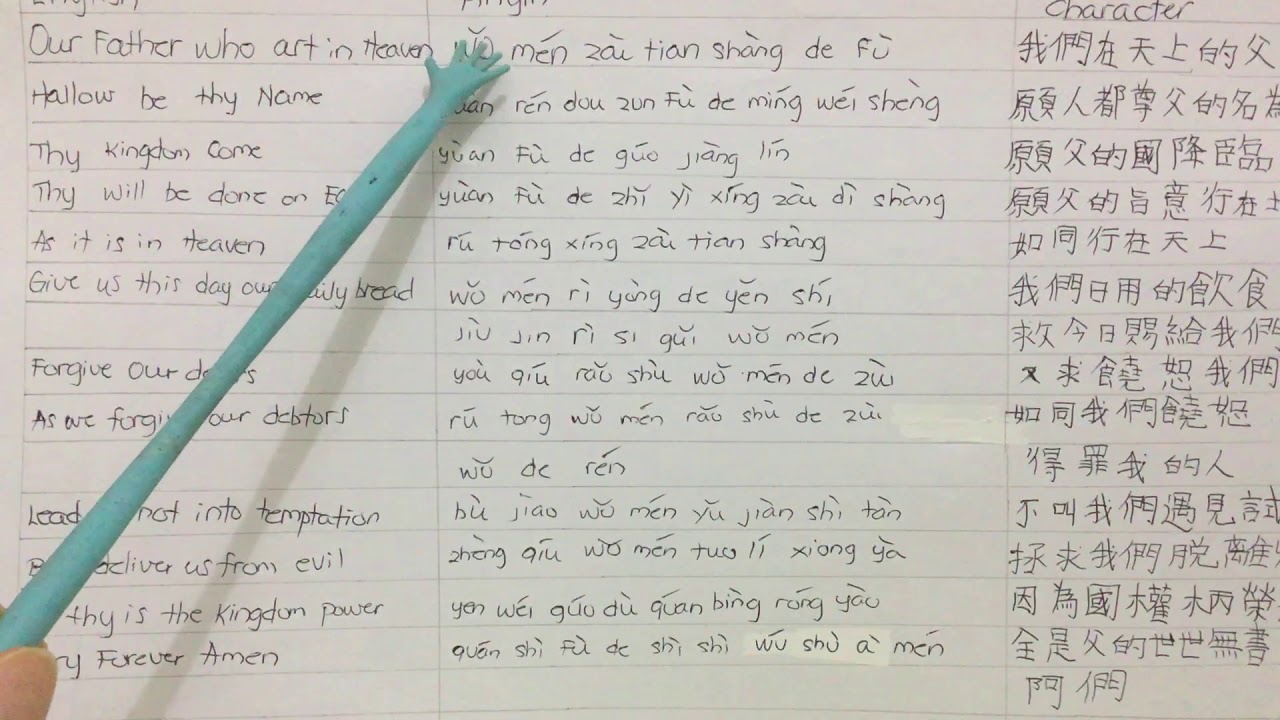 Character
Our Father who art in Heaven wǒ mén zài tian shàng de Fù 我們在天上的父
Hallow be thy Name rén dou zun Fù de míng wéi shèng 願人都尊父的名為
Thy Kingdom Come yùan Fù de gúo jiàng lín 願父的國降臨
Thy will be done on yùan Fù de zhǐ yì xíng zài dì shàng 願父的旨意行在
As it is in Heaven rú tóng xíng zài tian shàng 如同行在天上
Give us this day our daily bread wǒ mén rì yòng de yěn shí 我們日用的飲食
jiù jin rì si gǔi wǒ mén 求今日賜給我們
Forgive Our yoù qiú rǎo shù wǒ mén de zùi 求饒恕我們
As we forgive our debtors rú tong wǒ mén ráo shù de zùi 如同我們饒恕
wǒ de rén 得罪我的人
Lead not into temptation bù jiào wǒ mén yǔ jiàn shì tàn 不叫我們遇見試
deliver us from evil zhèng qíu wǒ mén tuo lí xiong yà 拯求我們脱離
thy is the Kingdom power yen wéi gúo dù qúan bìng róng yào 因為國權柄榮
Forever Amen qúan shì Fù de shì shì wú shù à mén 全是父的世世無書
阿們